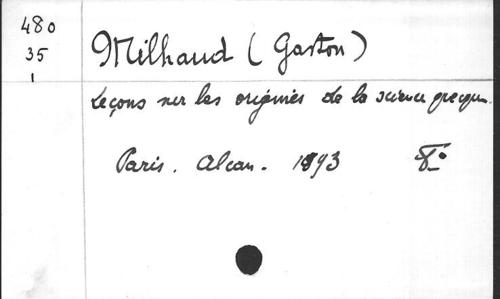 480
35
1
Milhaud (Gaston)
Leçons sur les origines de la science grecque.
Paris. Alcan. 1893 8°